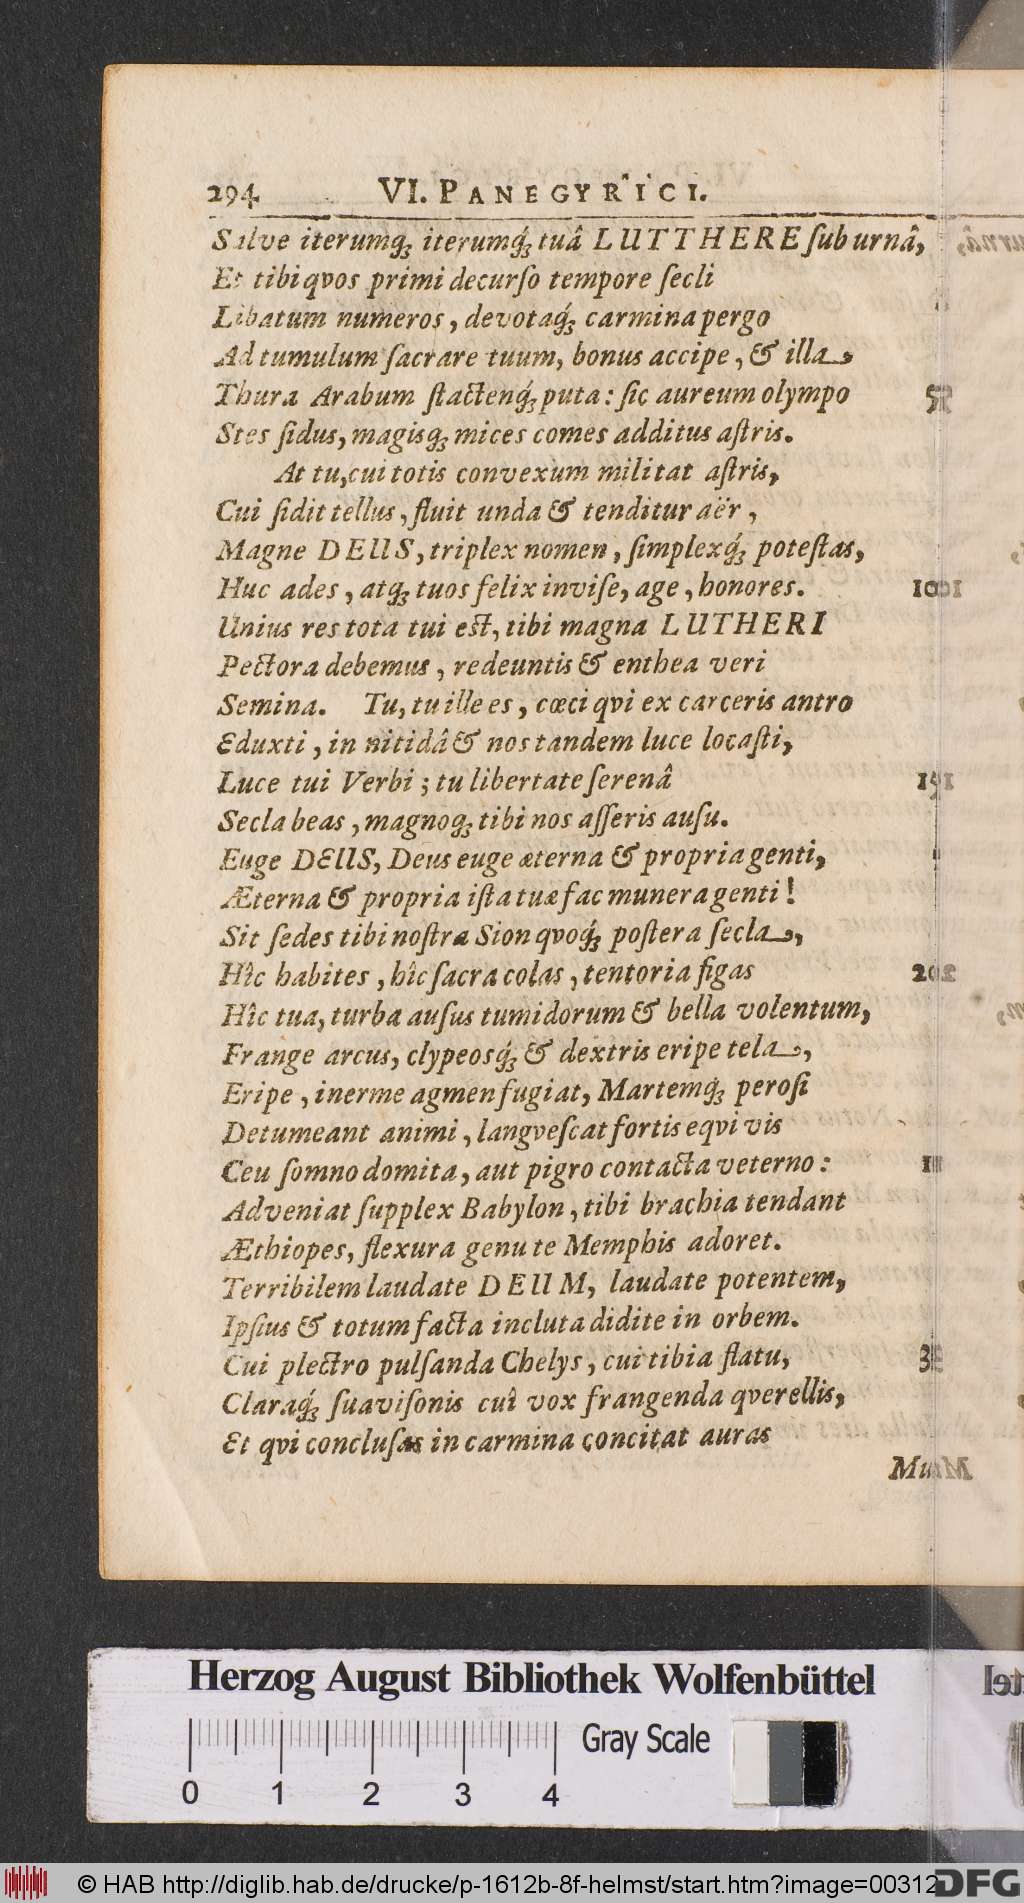 294 VI. PANEGYRICI.
Salve iterumq́; iterumq́; tuâ LUTTHERE ſub urnâ,
Et tibi qvos primi decurſo tempore ſecli
Libatum numeros, devotaq́; carmina pergo
Ad tumulum ſacrare tuum, bonus accipe, & illa,
Thura Arabum ſtactenq́; puta: ſic aureum olympo
Stes ſidus, magisq; mices comes additus aſtris.
At tu, cui totis convexum militat aſtris,
Cui ſidit tellus, fluit unda & tenditur aër,
Magne DEUS, triplex nomen, ſimplexq́; poteſtas,
Huc ades, atq; tuos felix inviſe, age, honores.
Unius res tota tui eſt, tibi magna LUTHERI
Pectora debemus, redeuntis & enthea veri
Semina. Tu, tu ille es, cœci qvi ex carceris antro
Eduxti, in nitidâ & nos tandem luce locaſti,
Luce tui Verbi; tu libertate ſerenâ
Secla beas, magnoq; tibi nos aſſeris auſu.
Euge DEUS, Deus euge æterna & propria genti,
Æterna & propria iſta tuæ fac munera genti!
Sit ſedes tibi noſtra Sion qvoq́; poſtera ſecla,
Hîc habites, hîc ſacra colas, tentoria figas
Hîc tua, turba auſus tumidorum & bella volentum,
Frange arcus, clypeosq́; & dextris eripe tela,
Eripe, inerme agmen fugiat, Martemq́; peroſi
Detumeant animi, langveſcat fortis eqvi vis
Ceu ſomno domita, aut pigro contacta veterno:
Adveniat ſupplex Babylon, tibi brachia tendant
Æthiopes, flexura genu te Memphis adoret.
Terribilem laudate DEUM, laudate potentem,
Ipſius & totum facta incluta didite in orbem.
Cui plectro pulſanda Chelys, cui tibia flatu,
Claraq́; ſuaviſonis cui vox frangenda qverellis,
Et qvi concluſas in carmina concitat auras
Herzog August Bibliothek Wolfenbüttel
Gray Scale
0 1 2 3 4
© HAB http://diglib.hab.de/drucke/p-1612b-8f-helmst/start.htm?image=00312
DFG